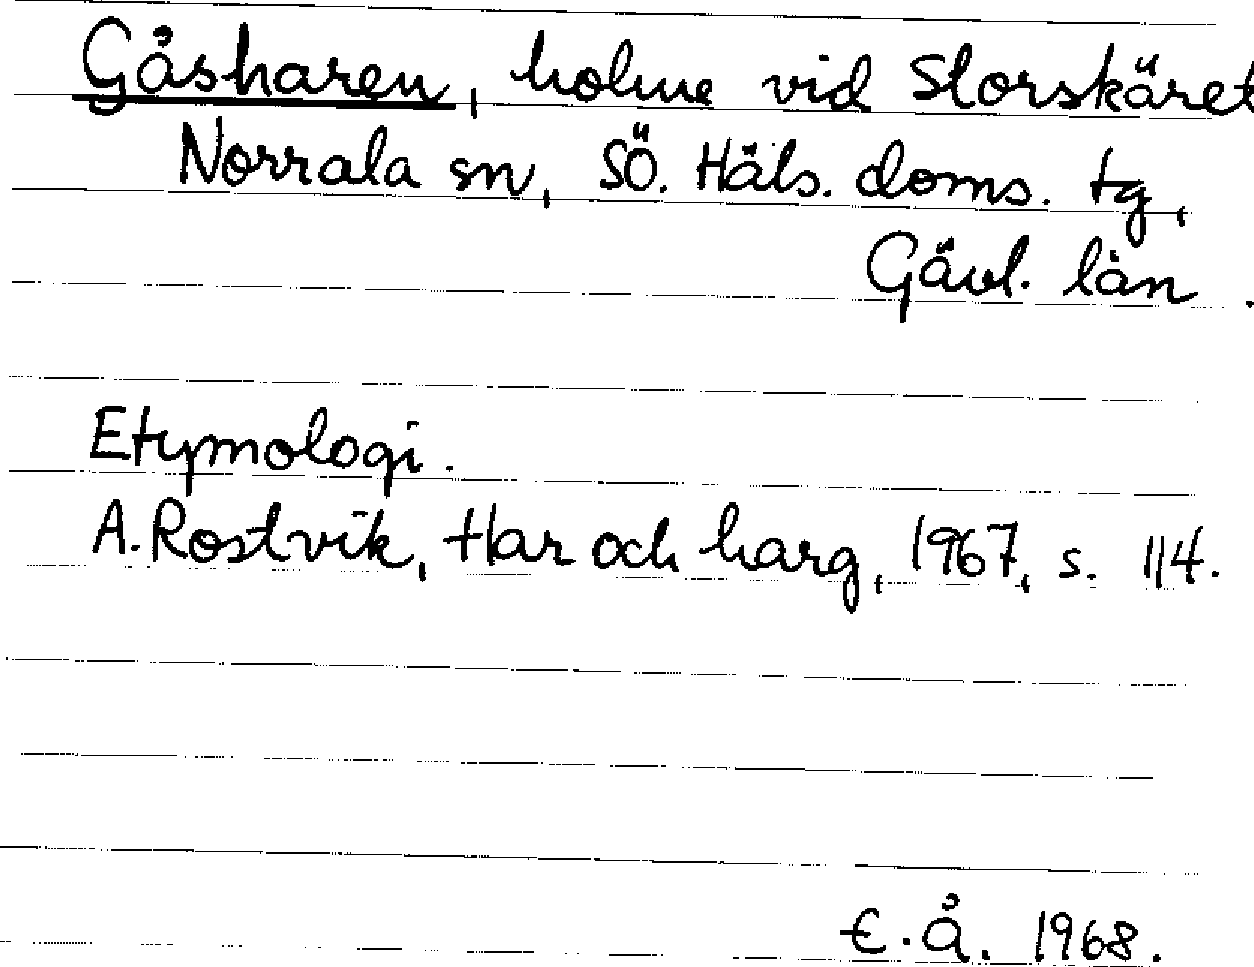 Gåsharen, holme vid Storskäret
Norrala sn, SÖ. Häls. doms. tg,
Gävl. län.
Etymologi.
A. Rostvik, Har och harg, 1967, s. 114.
E. Å. 1968.